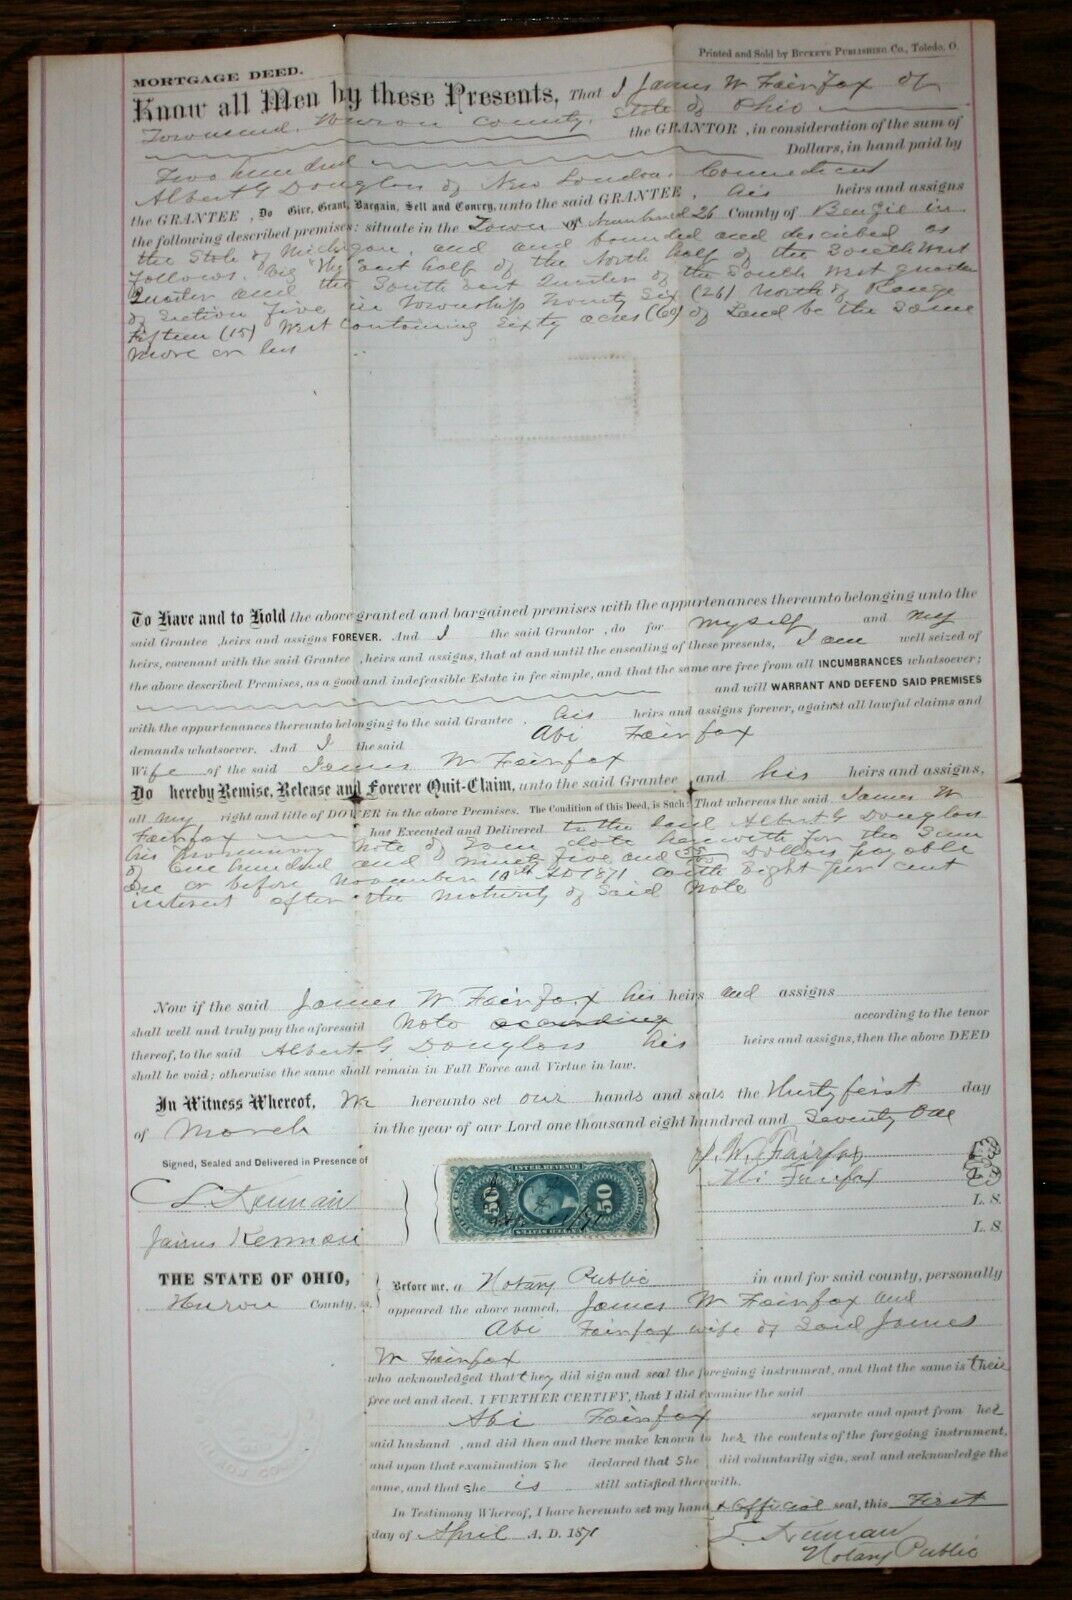 Printed and Sold by BUCKEYE PUBLISHING CO., Toledo, O.
MORTGAGE DEED.
Know all Men by these Presents, That I James W Fairfax of
Townsend, Huron County, State of Ohio
the GRANTOR, in consideration of the sum of
Two hundred Dollars, in hand paid by
Albert G Douglass of New London, Connecticut
the GRANTEE, Do Give, Grant, Bargain, Sell and Convey, unto the said GRANTEE, his heirs and assigns
the following described premises: situate in the Town of Numbered 26 County of Benzie in
the State of Michigan, and and bounded and described as
follows. Viz "The" East half of the North half of the South West
Quarter and the South East Quarter of the South West quarter
of Section Five in Township Twenty Six (26) North of Range
Fifteen (15) West Containing Sixty acres (60) of Land be the Same
more or less
To Have and to Hold the above granted and bargained premises with the appurtenances thereunto belonging unto the
said Grantee, heirs and assigns FOREVER. And I the said Grantor, do for myself and my
heirs, covenant with the said Grantee, heirs and assigns, that at and until the ensealing of these presents, I am well seized of
the above described Premises, as a good and indefeasible Estate in fee simple, and that the same are free from all INCUMBRANCES whatsoever;
and will WARRANT AND DEFEND SAID PREMISES
with the appartenances thereunto belonging to the said Grantee, his heirs and assigns forever, against all lawful claims and
demands whatsoever. And I the said Abi Fairfax
Wife of the said James W Fairfax
Do hereby Remise, Release and Forever Quit-Claim, unto the said Grantee and his heirs and assigns,
all my right and title of DOWER in the above Premises. The Condition of this Deed, is Such: That whereas the said James W
Fairfax has Executed and Delivered to the said Albert G Douglass
his Promissory Note of Even date herewith for the Sum
of One hundred and Ninety five and Dollars payable
on or before November 10th AD 1871 with Eight per cent
interest after the maturity of Said Note
Now if the said James W Fairfax his heirs and assigns
shall well and truly pay the aforesaid Note according according to the tenor
thereof, to the said Albert G. Douglass his heirs and assigns, then the above DEED
shall be void; otherwise the same shall remain in Full Force and Virtue in law.
In Witness Whereof, We hereunto set our hands and seals the Thirty first day
of March in the year of our Lord one thousand eight hundred and Seventy One
Signed, Sealed and Delivered in Presence of
J. W. Fairfax
Abi Fairfax
L. S.
L. S.
INTER. REVENUE
50
50
THE STATE OF OHIO,
Huron County, ss.
Before me, a Notary Public in and for said county, personally
appeared the above named, James W Fairfax and
Abi Fairfax wife of Said James
W Fairfax
who acknowledged that they did sign and seal the foregoing instrument, and that the same is their
free act and deed. I FURTHER CERTIFY, that I did examine the said
Abi Fairfax separate and apart from her
said husband, and did then and there make known to her the contents of the foregoing instrument,
and upon that examination She declared that She did voluntarily sign, seal and acknowledge the
same, and that she is still satisfied therewith.
In Testimony Whereof, I have hereunto set my hand & Official seal, this First
day of April A. D. 1871
Notary Public